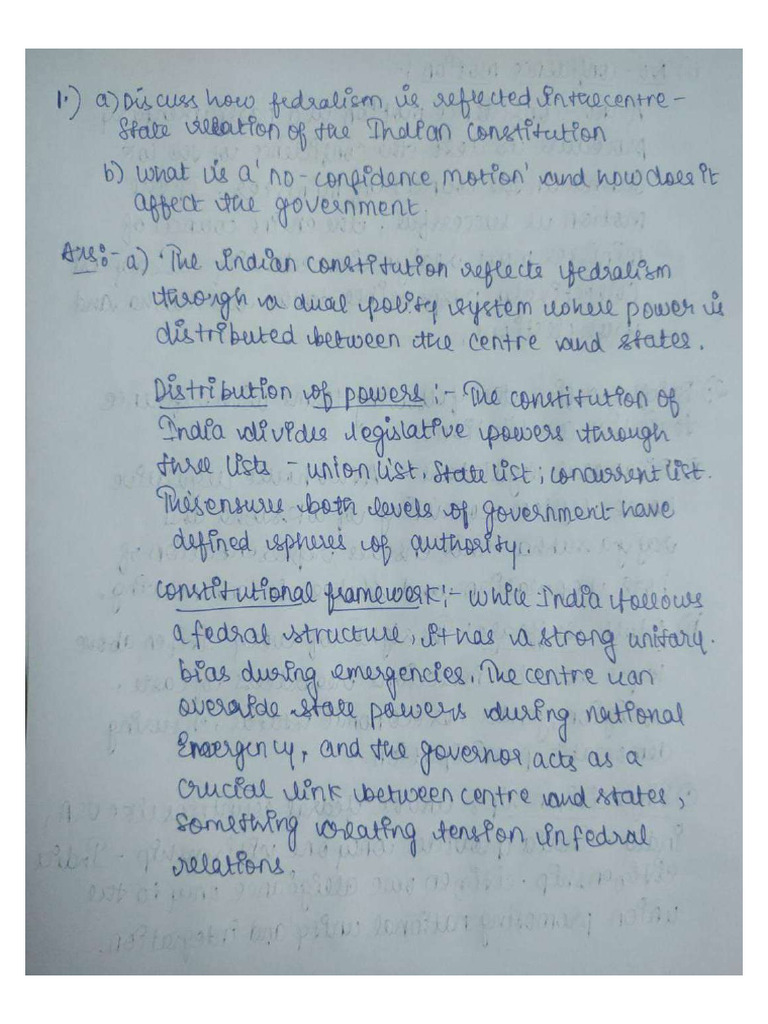 1.) a) Discuss how fedralism is reflected in the centre -
State relation of the Indian constitution
b) what is a 'no-confidence motion' and how does it
affect the government
Ans:- a) The Indian constitution reflects fedralism
through a dual polity system where power is
distributed between the centre and states.
Distribution of powers :- The constitution of
India divides legislative powers through
three lists - union list, state list, concurrent list.
This ensures both levels of government have
defined spheres of authority.
constitutional framework :- while India follows
a fedral structure, it has a strong unitary
bias during emergencies. The centre can
override state powers during national
Emergency, and the governor acts as a
crucial link between centre and states,
something creating tension in fedral
relations.